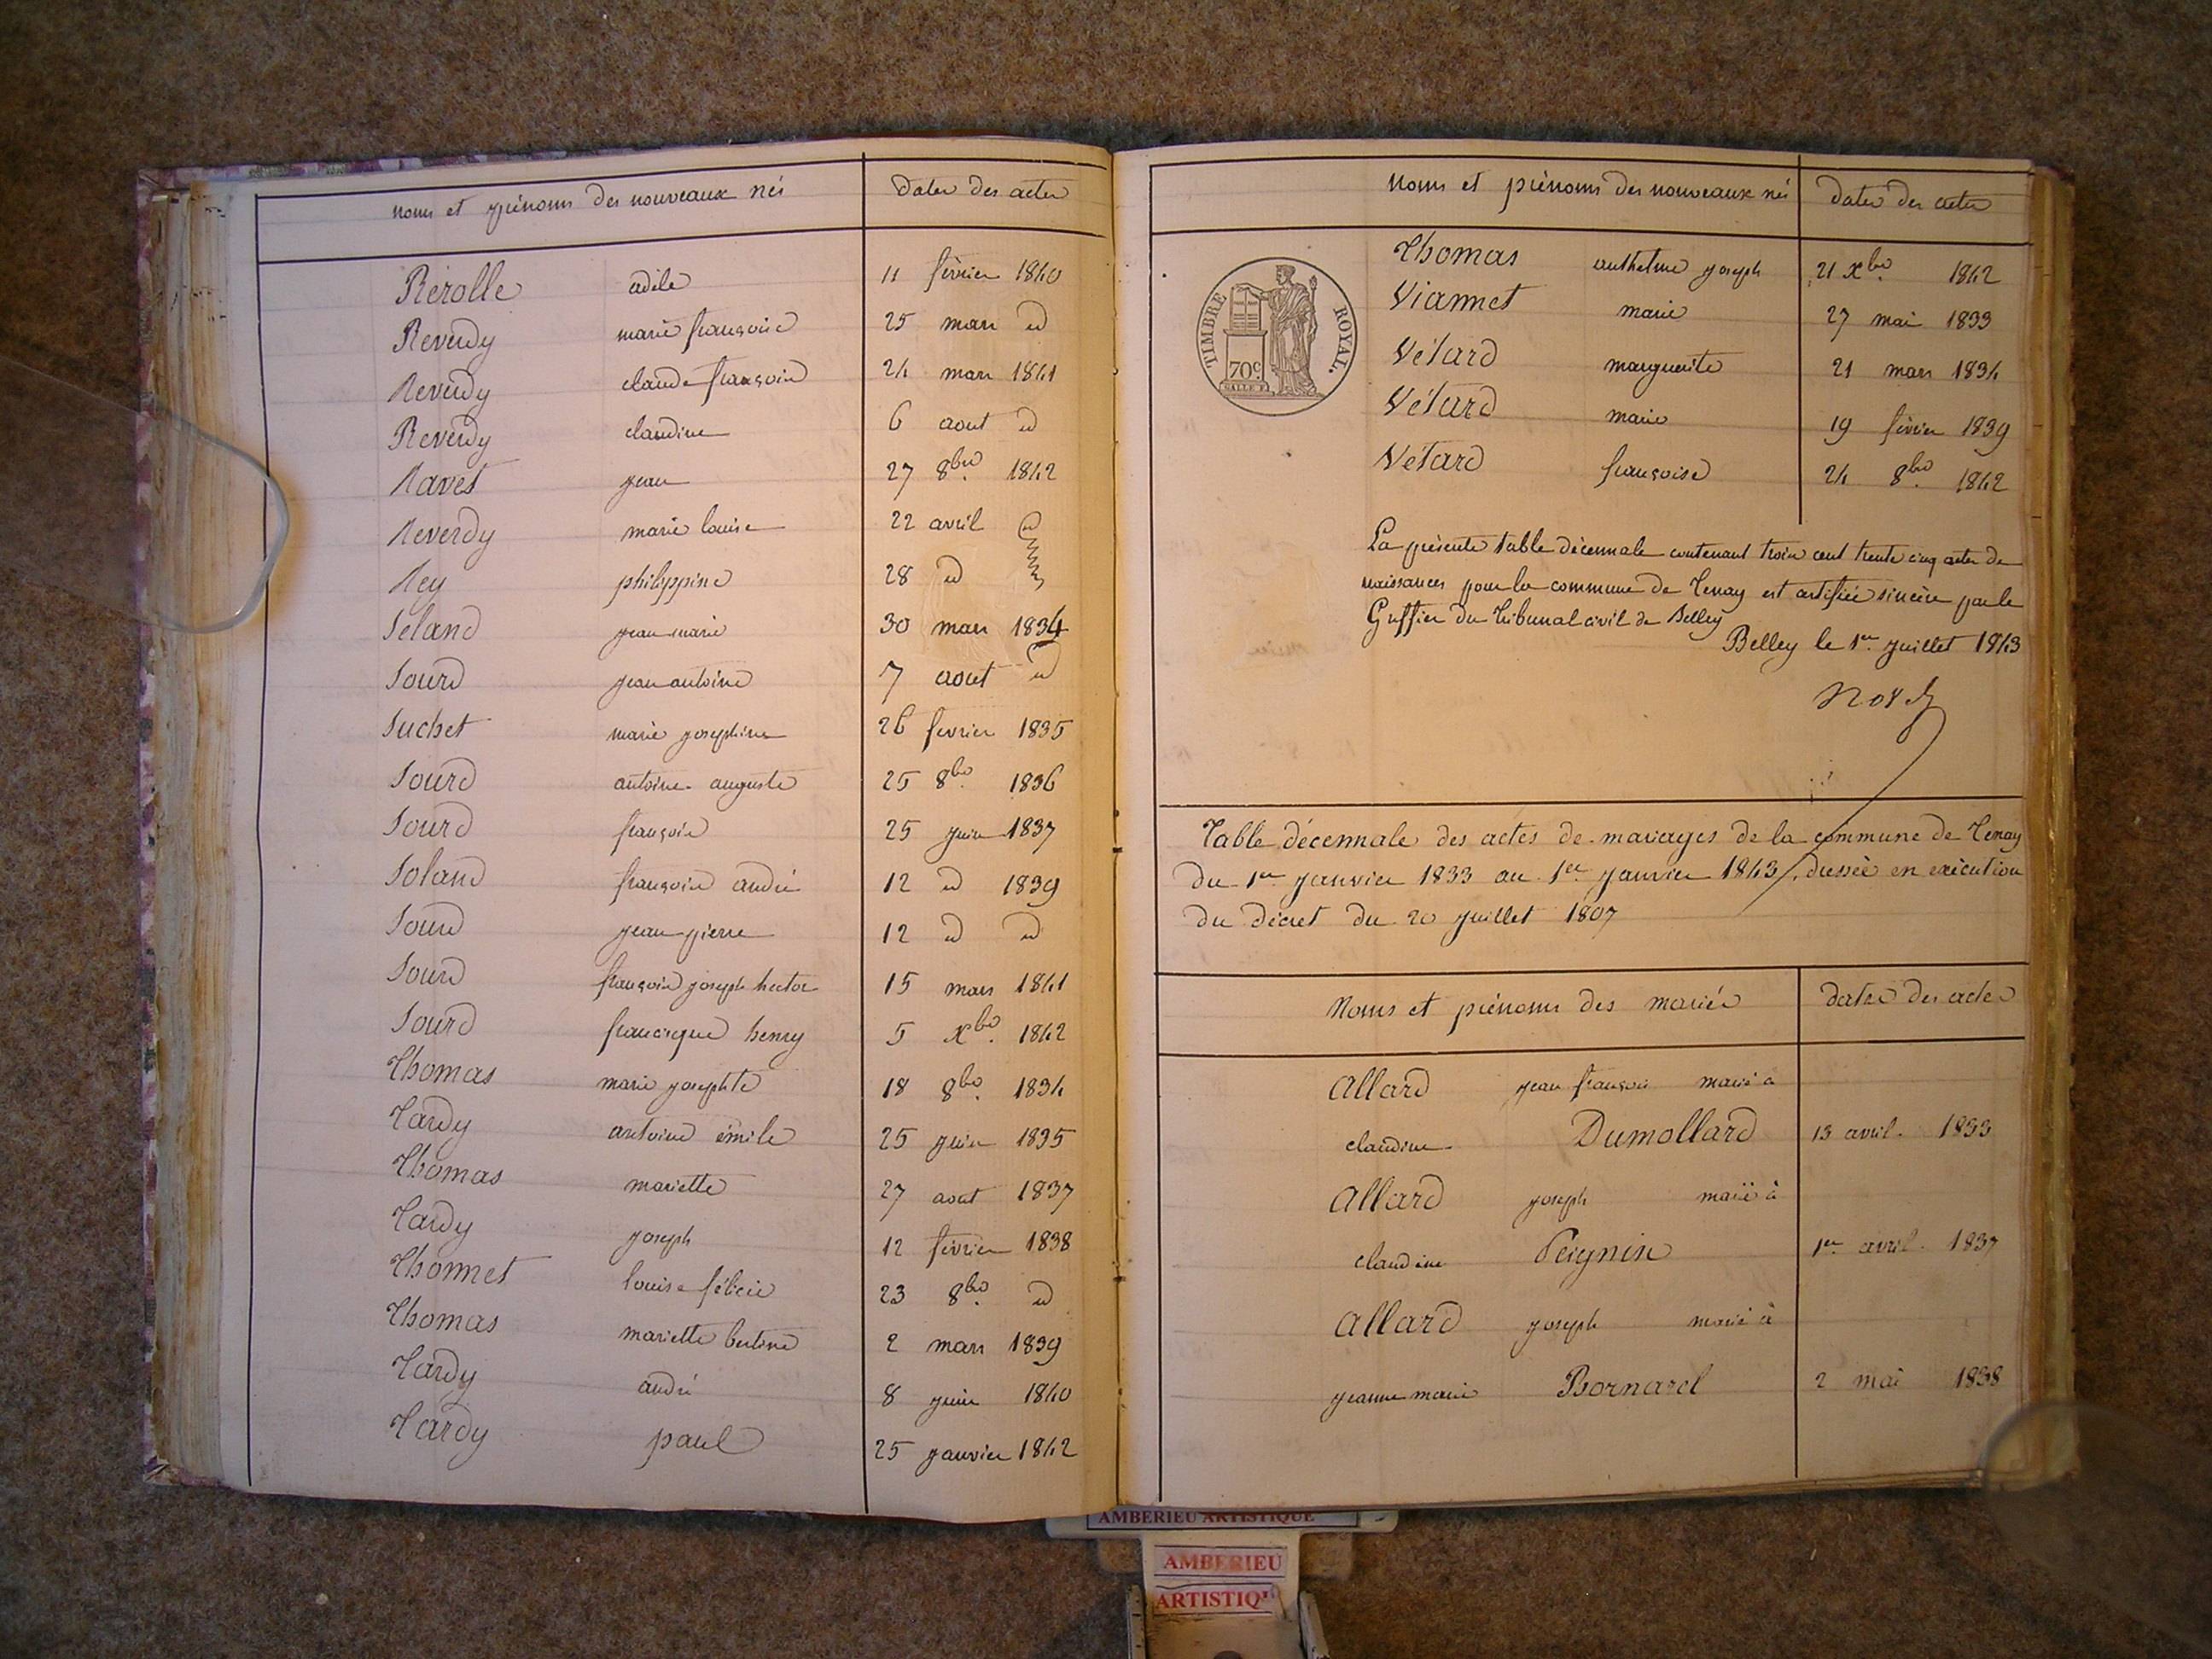 noms et prénoms des nouveaux nés dates des actes
Rérolle adèle 11 février 1840
Reverdy marie françoise 25 mars id
Reverdy claude françois 24 mars 1841
Reverdy claudine 6 aout id
Ravet jean 27 8bre 1842
Reverdy marie louise 22 avril id
Rey philippine 28 id
Seland jean marie 30 mars 1834
Sourd jean antoine 7 aout id
Suchet marie josephine 26 fevrier 1835
Sourd antoine auguste 25 8bre 1836
Sourd françois 25 juin 1837
Soland françois andré 12 id 1839
Sourd jean pierre 12 id id
Sourd françois joseph hector 15 mars 1841
Sourd francisque henry 5 Xbre 1842
Thomas marie josephte 18 8bre 1834
Tardy antoine émile 25 juin 1835
Thomas mariette 27 aout 1837
Tardy joseph 12 février 1838
Thonnet louise félicie 23 8bre id
Thomas mariette 2 mars 1839
Tardy andré 8 juin 1840
Tardy paul 25 janvier 1842
noms et prénoms des nouveaux nés dates des actes
TIMBRE ROYAL.
70c.
Thomas anthelme joseph 21 Xbre 1842
Viannet marie 27 mai 1833
Vétard marguerite 21 mars 1834
Vétard marie 19 février 1839
Vétard françoise 24 8bre 1842
La présente table décennale contenant trois cent trente cinq actes de
naissances pour la commune de Tenay est certifiée sincère par le
Greffier du Tribunal civil de Belley
Belley le 1er juillet 1843
Table décennale des actes de mariages de la commune de Tenay
du 1er janvier 1833 au 1er janvier 1843, dressée en exécution
du décret du 20 juillet 1807
Noms et prénoms des mariés dates des actes
Allard jean françois marié à
claudine Dumollard 13 avril 1833
Allard joseph marié à
claudine Peignin 1er avril 1837
Allard joseph marié à
jeanne marie Bornarel 2 mai 1838
AMBERIEU ARTISTIQUE
AMBERIEU